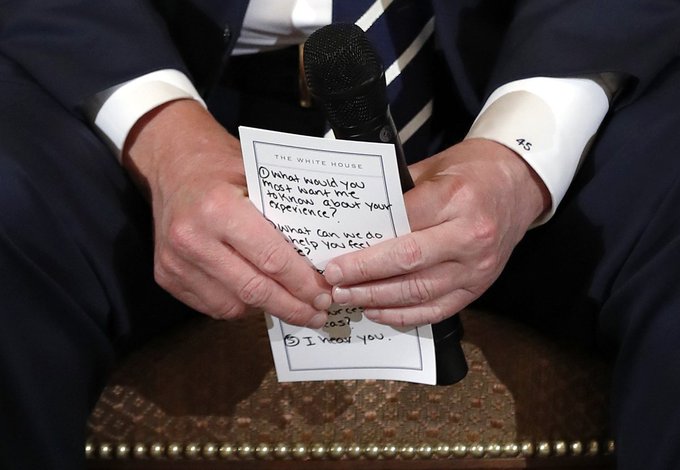 THE WHITE HOUSE
① What would you
most want me
to know about your
experience?
What can we do
help you feel
?
5 I hear you.
45